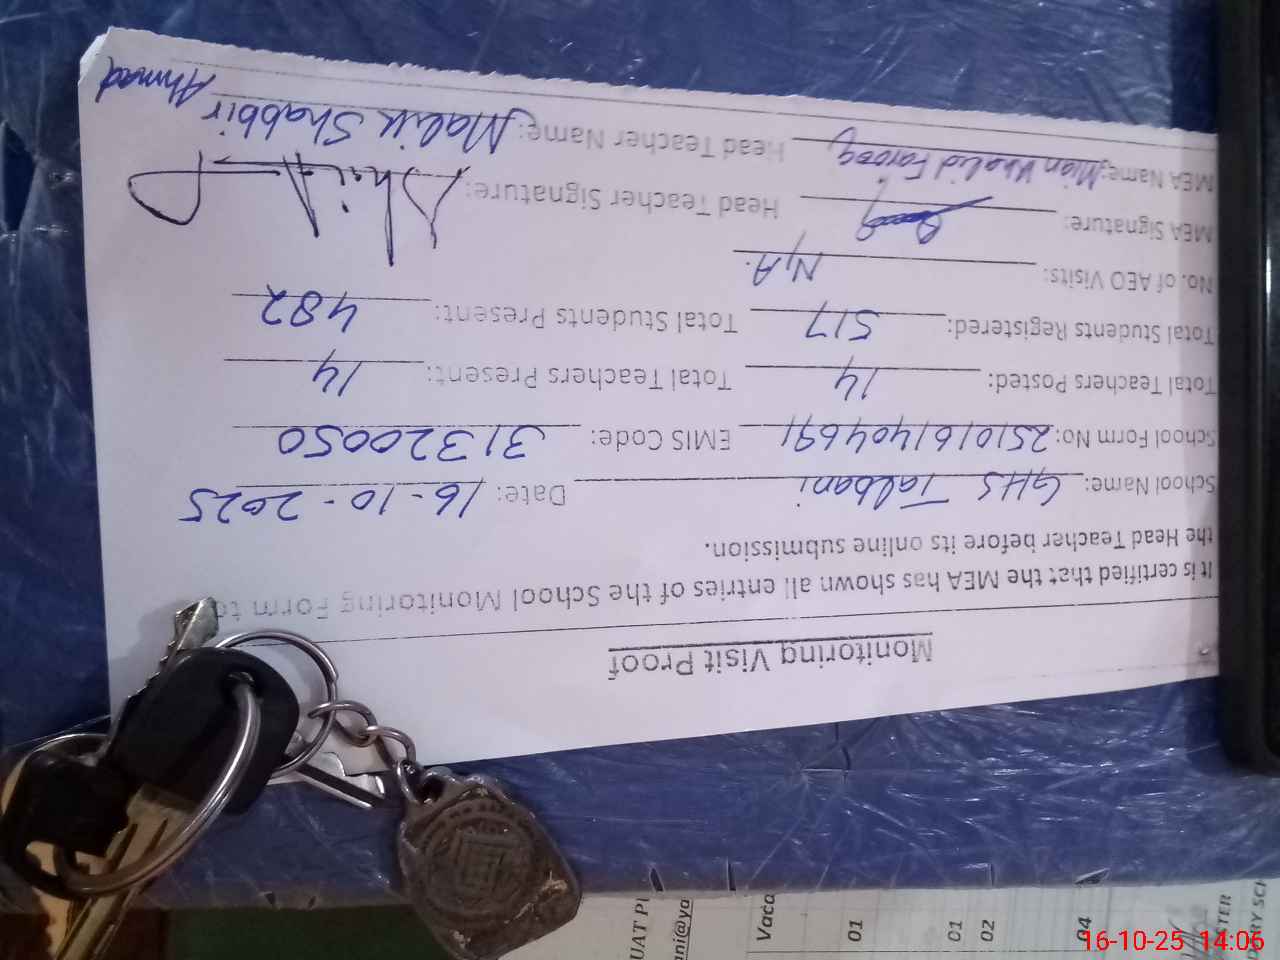 Monitoring Visit Proof
It is certified that the MEA has shown all entries of the School Monitoring Form to
the Head Teacher before its online submission.
School Name: GHS Talbani Date: 16-10-2025
School Form No: 2510161404691 EMIS Code: 31320050
Total Teachers Posted: 14 Total Teachers Present: 14
Total Students Registered: 517 Total Students Present: 482
No. of AEO Visits: N,A.
MEA Signature: Head Teacher Signature:
MEA Name: Mian Khalid Farooq Head Teacher Name: Malik Shabbir Ahmad
UAT
ani@ya
Vaca
01
01
02
04
TER
16-10-25 14:06